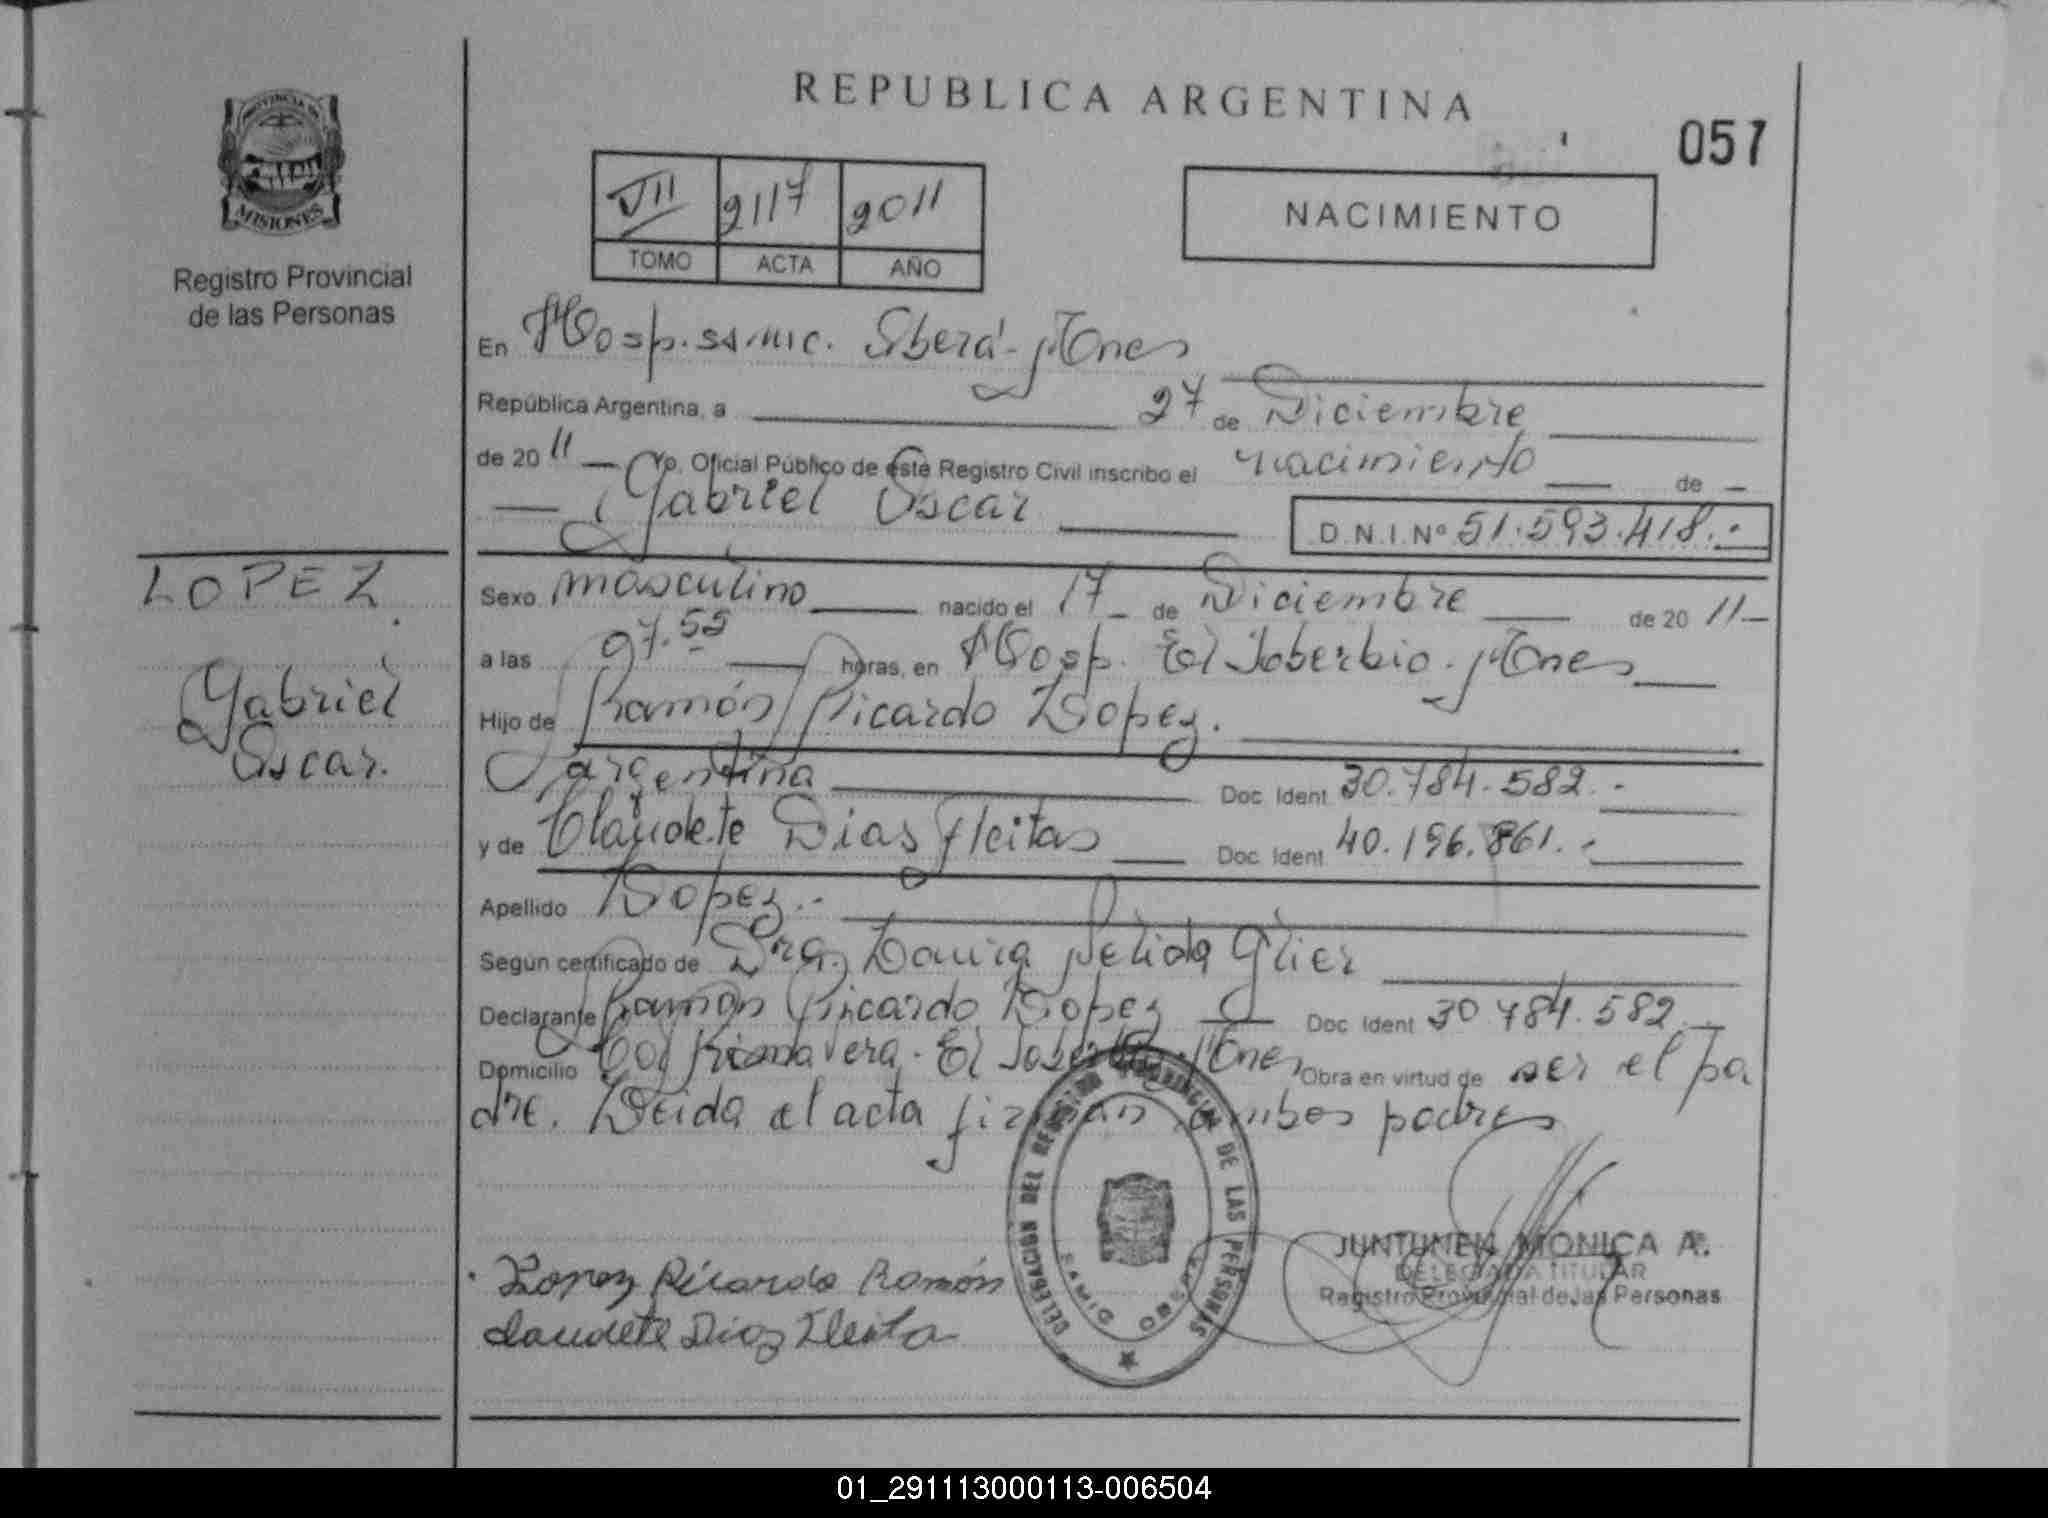 REPUBLICA ARGENTINA
057
PROVINCIA DE
MISIONES
Registro Provincial
de las Personas
VII 2117 2011
TOMO ACTA AÑO
NACIMIENTO
En Hosp. ss.mic. Oberá - Mnes
República Argentina, a 27 de Diciembre
de 20 11 Yo, Oficial Público de este Registro Civil inscribo el nacimiento de
Gabriel Oscar D.N.I. Nº 51.593.418.-
LOPEZ
Gabriel
Oscar.
Sexo masculino nacido el 17 de Diciembre de 20 11
a las 07.55 horas, en Hosp. El Soberbio - Mnes
Hijo de Ramón Ricardo Lopez.
argentina Doc. Ident 30.784.582.-
y de Claudete Dias Fleitas Doc. Ident 40.196.861.-
Apellido Lopez.-
Según certificado de Dra. Nelida
Declarante Ramón Ricardo Lopez Doc. Ident 30.784.582.
Domicilio Col Primavera - El Soberbio - Mnes Obra en virtud de ser el pa
dre. Leida el acta firman ambos padres
DELEGACIÓN DEL REGISTRO PROVINCIAL DE LAS PERSONAS
Lopez Ricardo Ramón
Claudete Dias Fleita
JUNTUNEN MONICA A.
DELEGADA TITULAR
Registro Provincial de las Personas
01_291113000113-006504